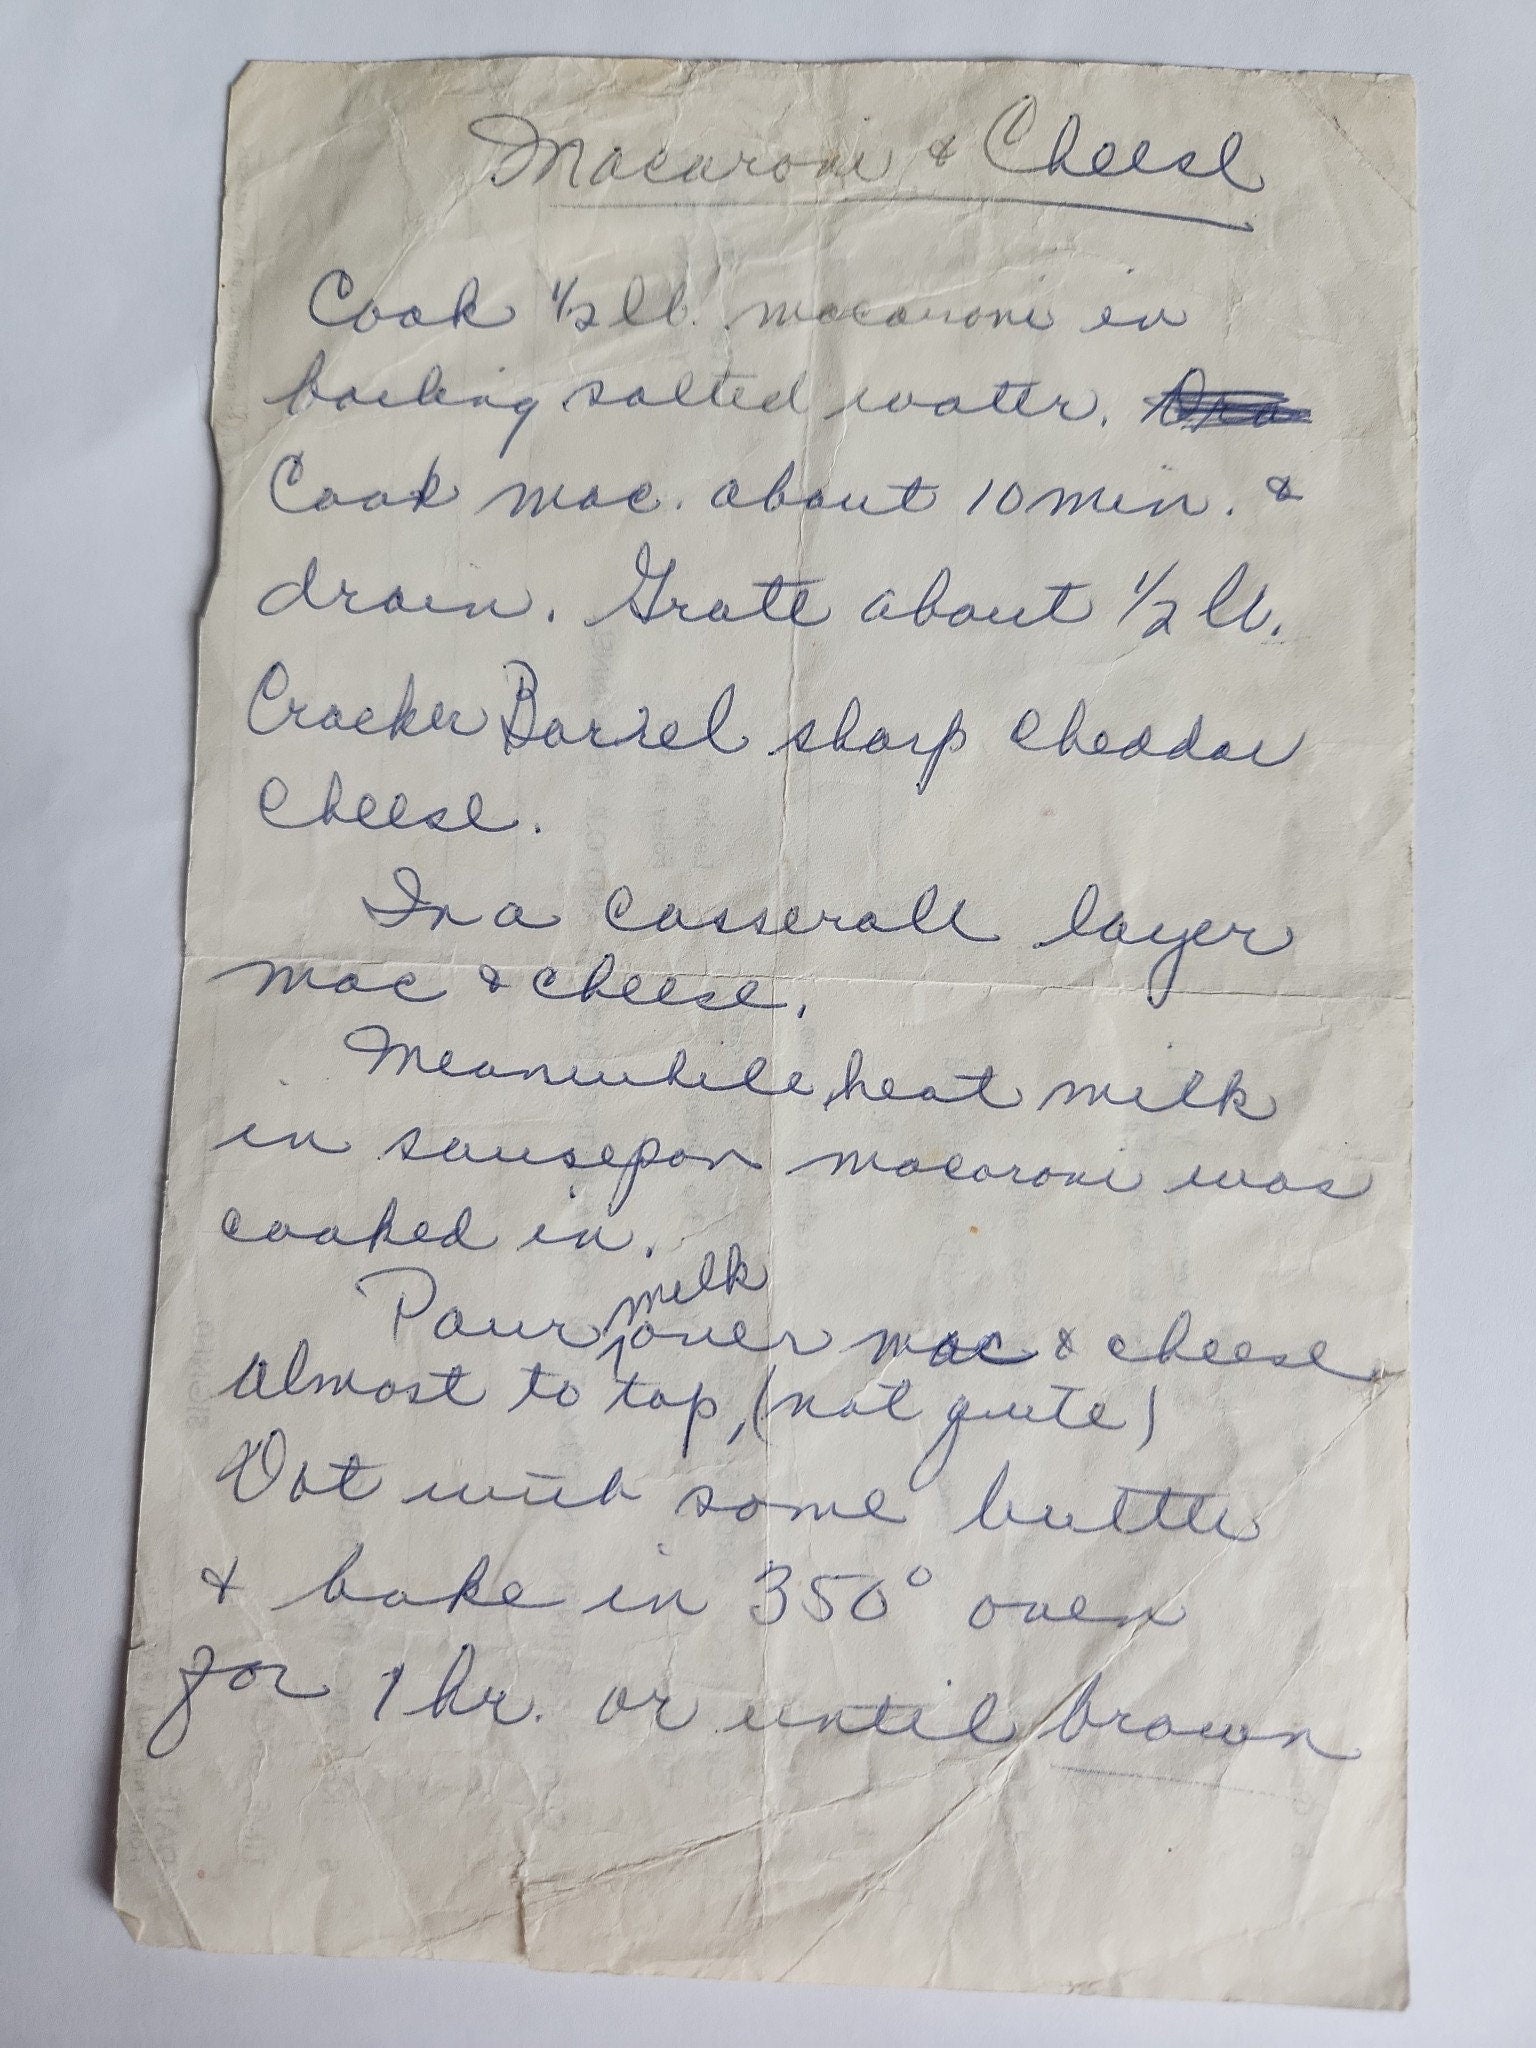 Macaroni & Cheese
Cook 1/2 lb. macaroni in
boiling salted water.
Cook mac. about 10 min. &
drain. Grate about 1/2 lb.
Cracker Barrel sharp cheddar
cheese.
In a casserole layer
mac & cheese.
Meanwhile, heat milk
in sausepan macaroni was
cooked in.
Pour milk over mac & cheese
almost to top, (not quite)
Dot with some butter
& bake in 350° oven
for 1 hr. or until brown